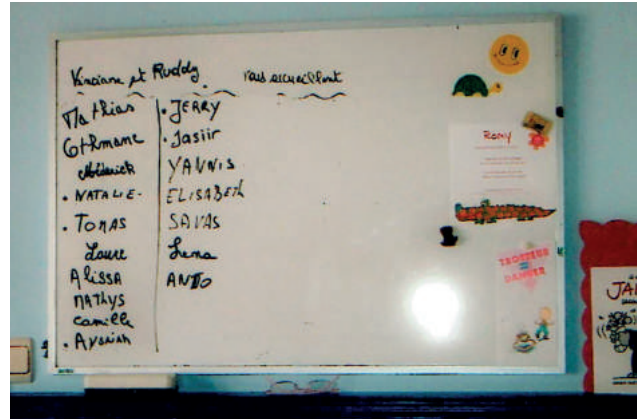 Vinciane et Ruddy vous accueillent
Mathias
Othmane
• NATALIE-
• TOMAS
Laure
ALISSA
MATHYS
Camille
• JERRY
• Jasiir
YANNIS
ELISABETH
SAVAS
Lena
ANTO
Romy
TROTTEUR
DANGER
JA